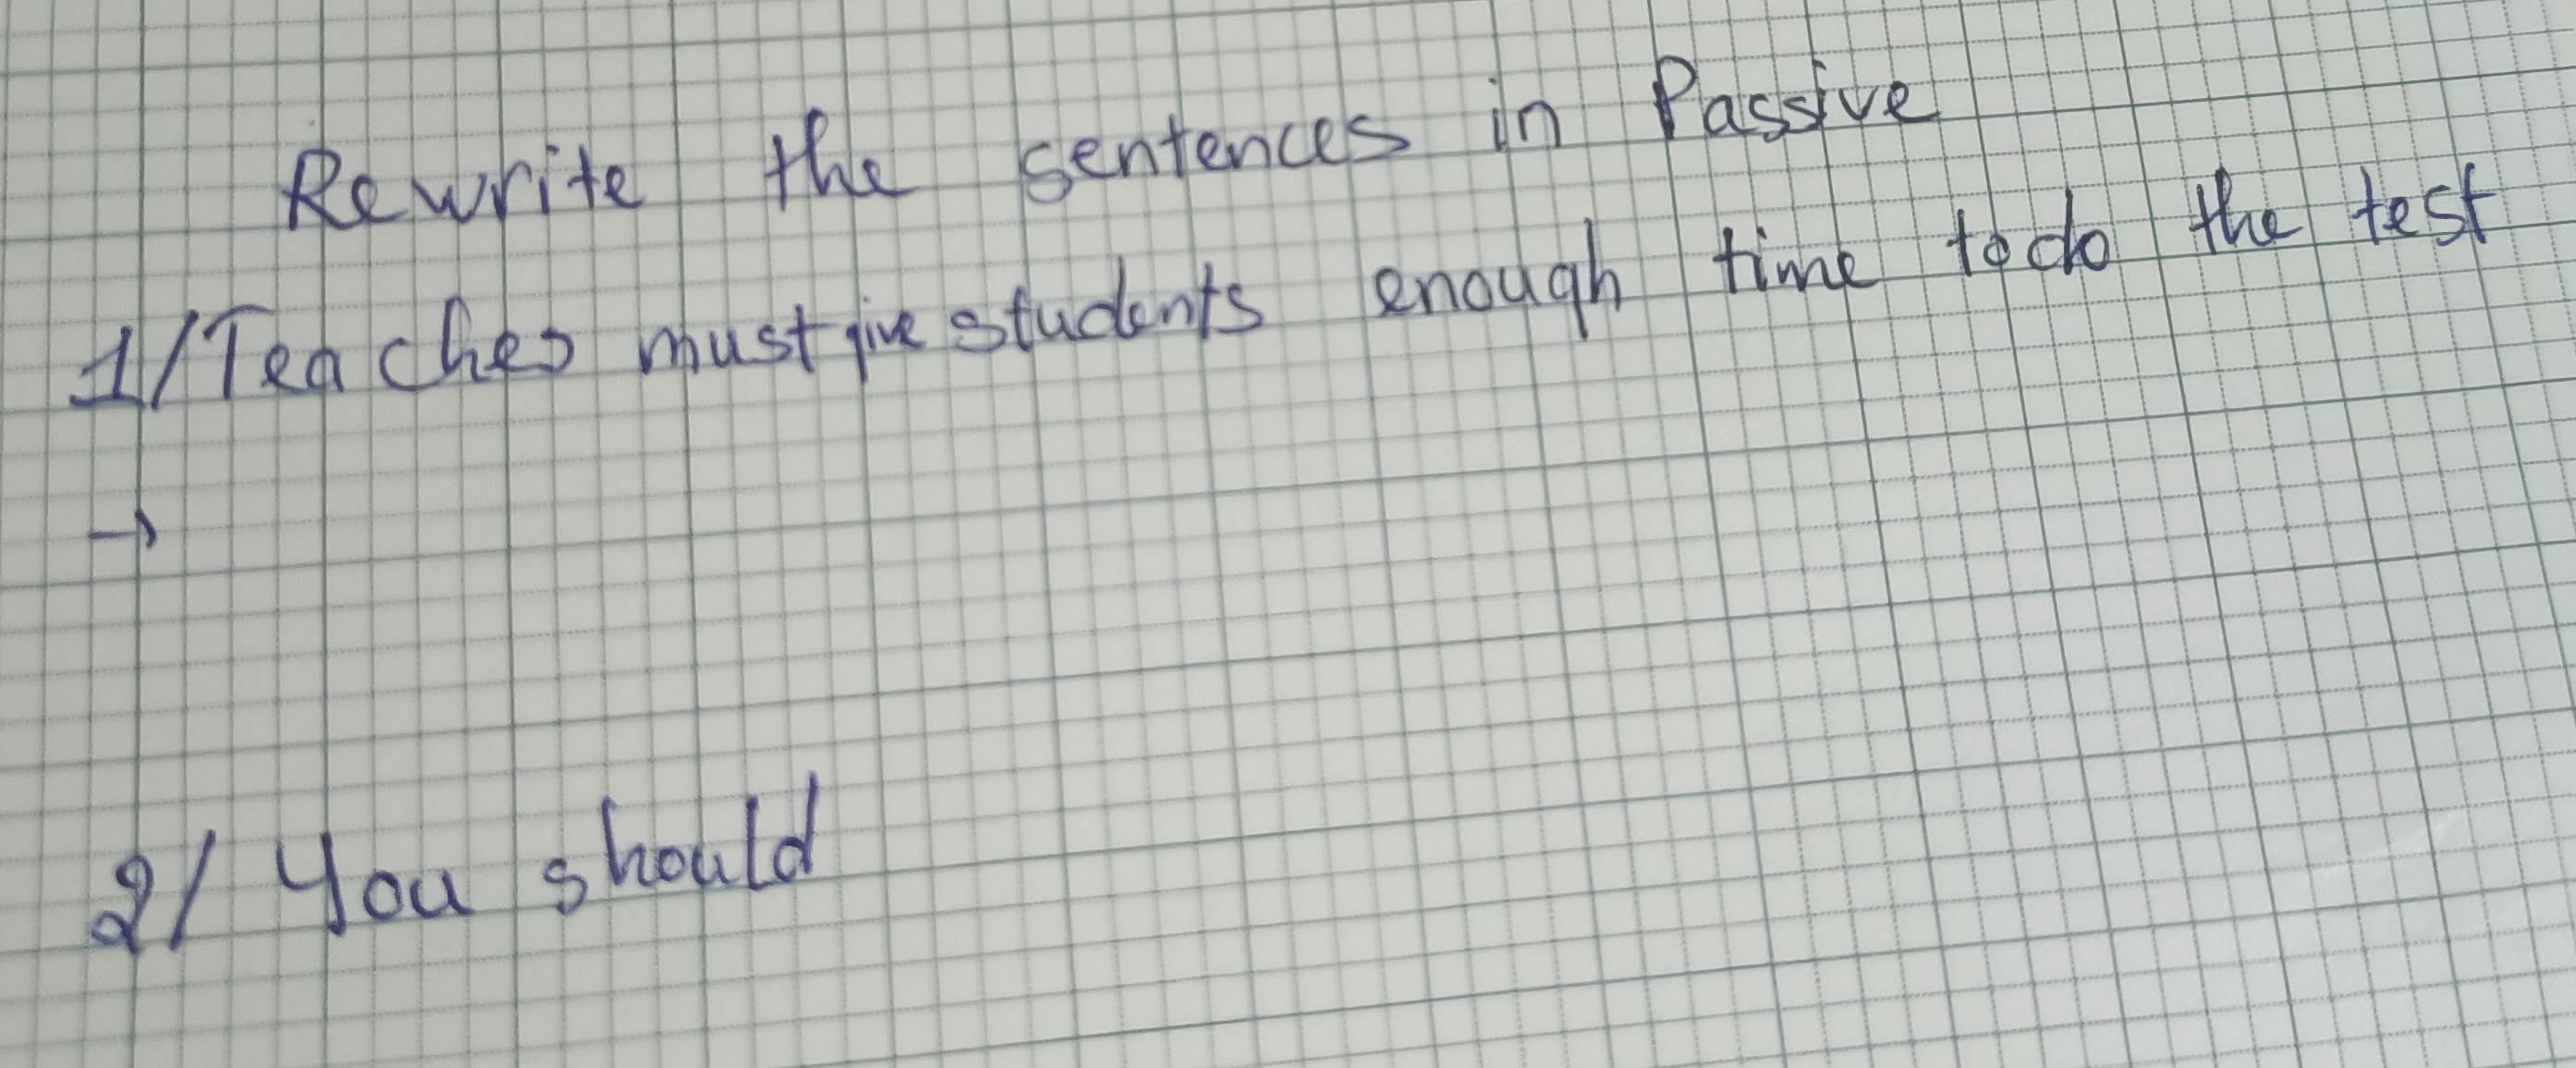 Rewrite the sentences in Passive
1/Teaches must give students enough time to do the test
→
2/ You should